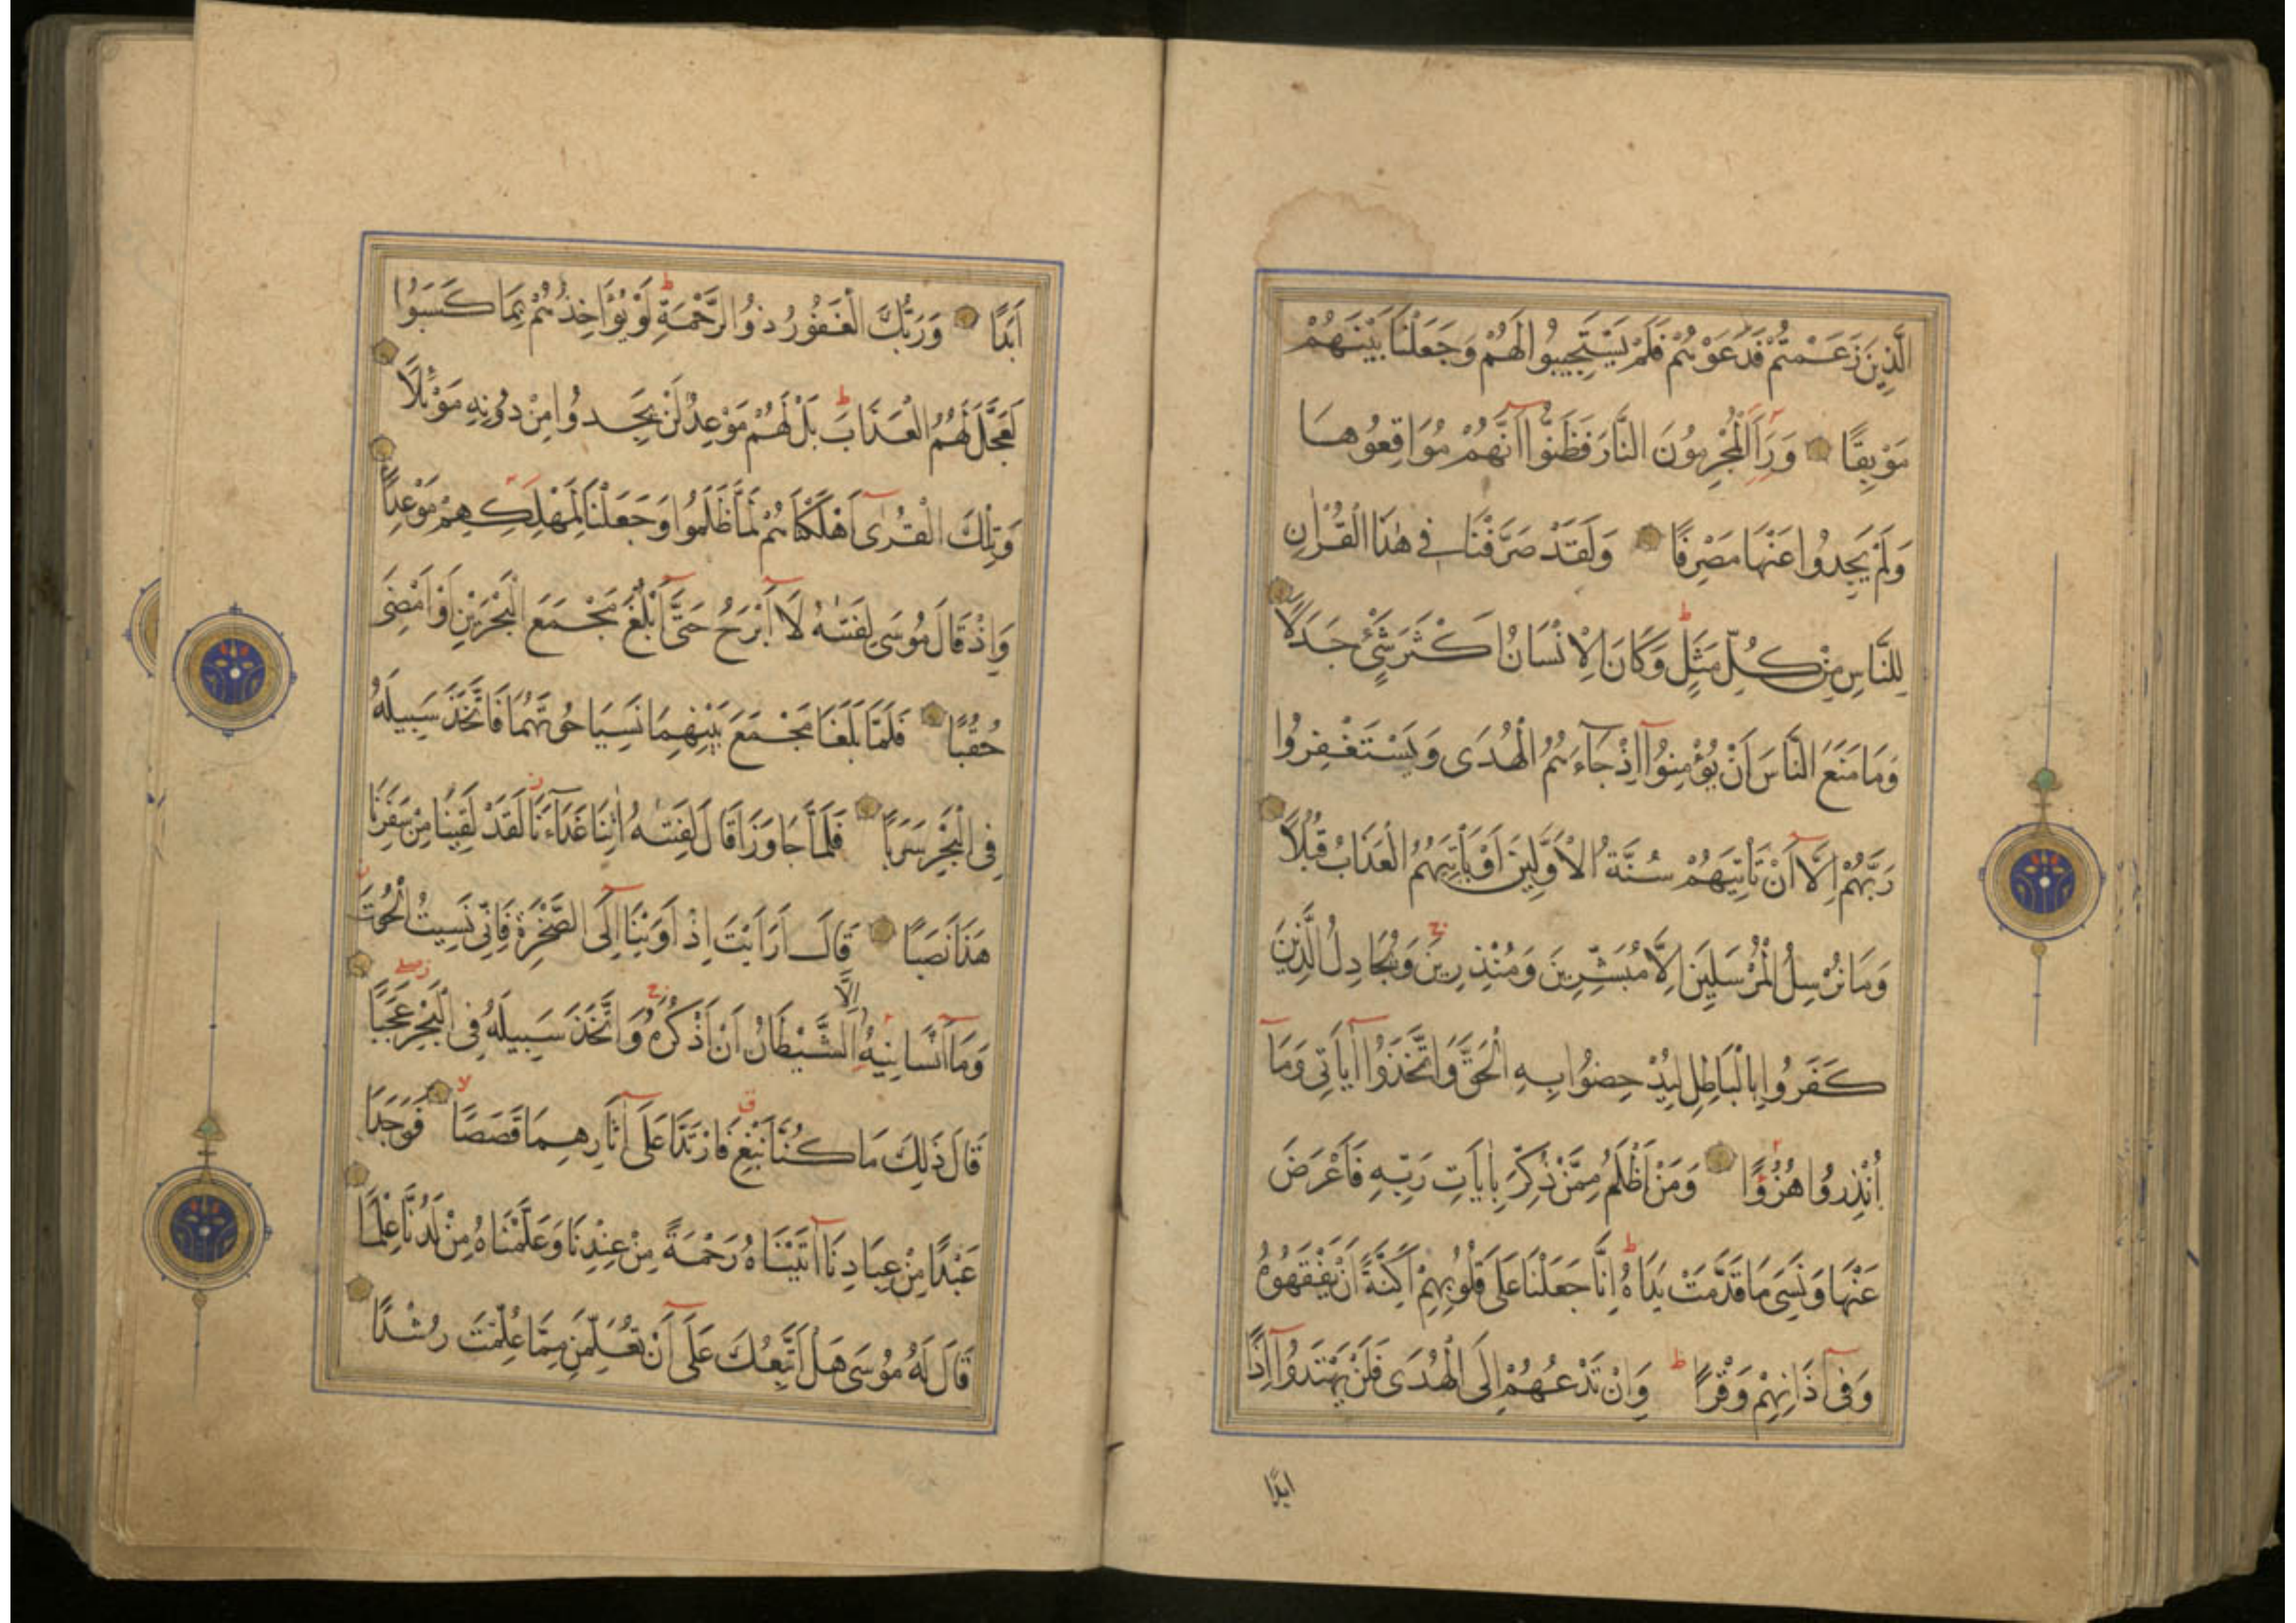 الَّذِينَ زَعَمْتُمْ فَدَعَوْهُمْ فَلَمْ يَسْتَجِيبُوا لَهُمْ وَجَعَلْنَا بَيْنَهُمْ
مَوْبِقًا وَرَاَ الْمُجْرِمُونَ النَّارَ فَظَنُّوا اَنَّهُمْ مُوَاقِعُوهَا
وَلَمْ يَجِدُوا عَنْهَا مَصْرِفًا وَلَقَدْ صَرَّفْنَا فِي هٰذَا الْقُرْاٰنِ
لِلنَّاسِ مِنْ كُلِّ مَثَلٍ ط وَكَانَ الْاِنْسَانُ اَكْثَرَ شَيْءٍ جَدَلًا
وَمَا مَنَعَ النَّاسَ اَنْ يُؤْمِنُوا اِذْ جَاءَهُمُ الْهُدَى وَيَسْتَغْفِرُوا
رَبَّهُمْ اِلَّا اَنْ تَأْتِيَهُمْ سُنَّةُ الْاَوَّلِينَ اَوْ يَأْتِيَهُمُ الْعَذَابُ قُبُلًا
وَمَا نُرْسِلُ الْمُرْسَلِينَ اِلَّا مُبَشِّرِينَ وَمُنْذِرِينَ ج وَيُجَادِلُ الَّذِينَ
كَفَرُوا بِالْبَاطِلِ لِيُدْحِضُوا بِهِ الْحَقَّ وَاتَّخَذُوا اٰيَاتِي وَمَا
اُنْذِرُوا هُزُوًا وَمَنْ اَظْلَمُ مِمَّنْ ذُكِّرَ بِاٰيَاتِ رَبِّهِ فَاَعْرَضَ
عَنْهَا وَنَسِيَ مَا قَدَّمَتْ يَدَاهُ ط اِنَّا جَعَلْنَا عَلَى قُلُوبِهِمْ اَكِنَّةً اَنْ يَفْقَهُوهُ
وَفِي اٰذَانِهِمْ وَقْرًا ط وَاِنْ تَدْعُهُمْ اِلَى الْهُدَى فَلَنْ يَهْتَدُوا اِذًا
ابدًا
اَبَدًا وَرَبُّكَ الْغَفُورُ ذُو الرَّحْمَةِ ط لَوْ يُؤَاخِذُهُمْ بِمَا كَسَبُوا
لَعَجَّلَ لَهُمُ الْعَذَابَ ط بَلْ لَهُمْ مَوْعِدٌ لَنْ يَجِدُوا مِنْ دُونِهِ مَوْئِلًا
وَتِلْكَ الْقُرٰى اَهْلَكْنَاهُمْ لَمَّا ظَلَمُوا وَجَعَلْنَا لِمَهْلِكِهِمْ مَوْعِدًا
وَاِذْ قَالَ مُوسَى لِفَتٰىهُ لَا اَبْرَحُ حَتَّى اَبْلُغَ مَجْمَعَ الْبَحْرَيْنِ اَوْ اَمْضِيَ
حُقُبًا فَلَمَّا بَلَغَا مَجْمَعَ بَيْنِهِمَا نَسِيَا حُوتَهُمَا فَاتَّخَذَ سَبِيلَهُ
فِي الْبَحْرِ سَرَبًا فَلَمَّا جَاوَزَا قَالَ لِفَتٰىهُ اٰتِنَا غَدَاءَنَا لَقَدْ لَقِينَا مِنْ سَفَرِنَا
هَذَا نَصَبًا قَالَ اَرَاَيْتَ اِذْ اَوَيْنَا اِلَى الصَّخْرَةِ فَاِنِّي نَسِيتُ الْحُوتَ
وَمَا اَنْسَانِيهُ اِلَّا الشَّيْطَانُ اَنْ اَذْكُرَهُ ج وَاتَّخَذَ سَبِيلَهُ فِي الْبَحْرِ عَجَبًا
قَالَ ذَلِكَ مَا كُنَّا نَبْغِ ق فَارْتَدَّا عَلَى اٰثَارِهِمَا قَصَصًا لا فَوَجَدَا
عَبْدًا مِنْ عِبَادِنَا اٰتَيْنَاهُ رَحْمَةً مِنْ عِنْدِنَا وَعَلَّمْنَاهُ مِنْ لَدُنَّا عِلْمًا
قَالَ لَهُ مُوسَى هَلْ اَتَّبِعُكَ عَلَى اَنْ تُعَلِّمَنِ مِمَّا عُلِّمْتَ رُشْدًا